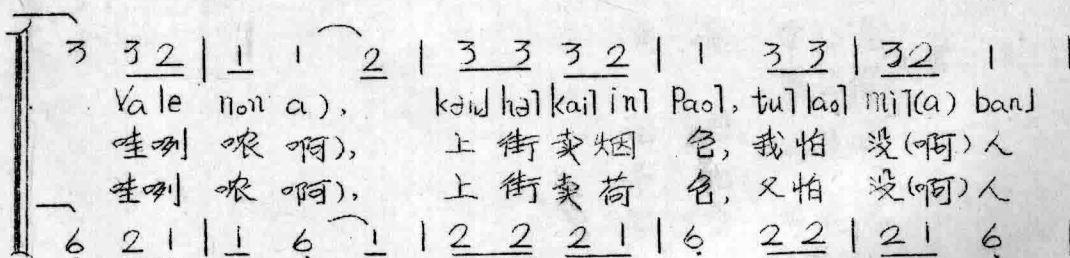 3 32 | 1 1 2 | 33 32 | 1 33 | 32 1 |
Va le non a), kəiɯ˩ hə˥ kai˥ in˥ Pao˥, tu˥ lao˥ mi˥(a) ban˩
哇咧 哝 啊), 上 街 卖 烟 包, 我怕 没(啊)人
哇咧 哝 啊), 上 街 卖 荷 包, 又怕 没(啊)人
6̣ 2 1 | 1 6̣ 1 | 2 2 2 1 | 6̣ 2 2 | 2 1 6̣ |